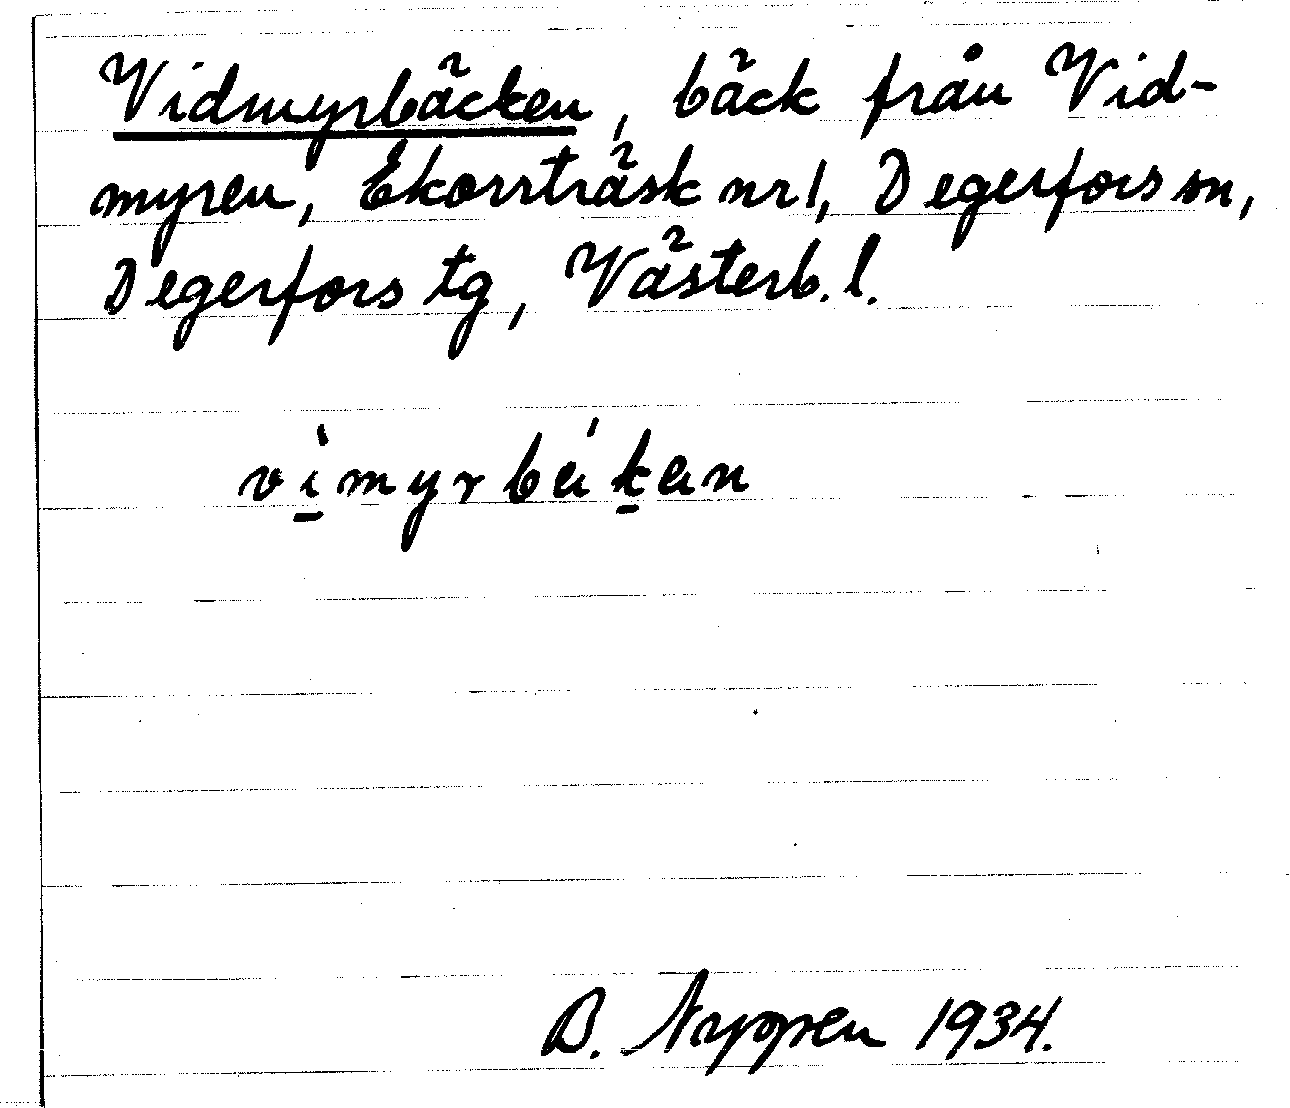 Vidmyrbäcken, bäck från Vid-
myren, Ekorrträsk nr 1, Degerfors sn,
Degerfors tg, Västerb. l.
B. 1934.